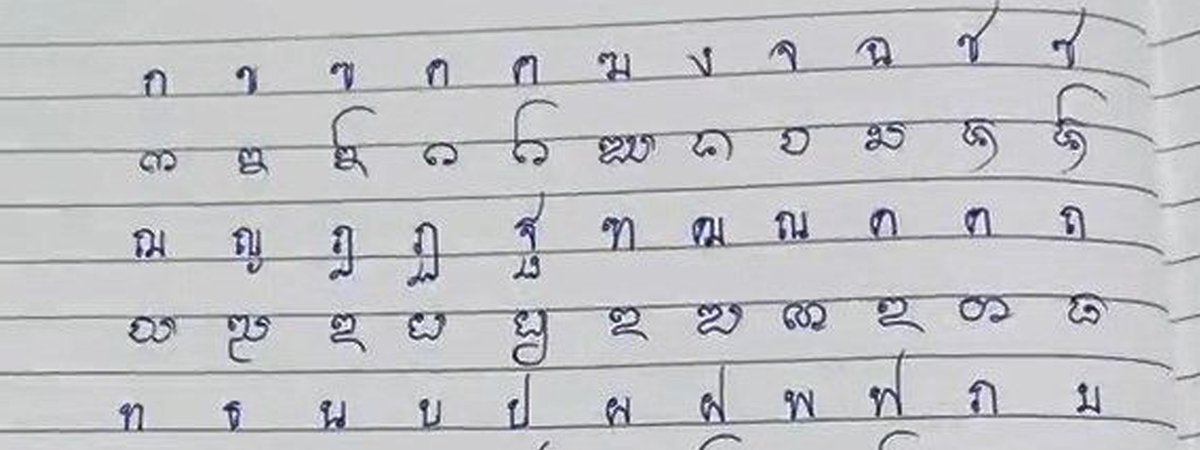 ก ข ฃ ค ฅ ฆ ง จ ฉ ช ซ
ᨠ ᨡ ᨢ ᨣ ᨤ ᨥ ᨦ ᨧ ᨨ ᨩ ᨪ
ฌ ญ ฎ ฏ ฐ ฑ ฒ ณ ด ต ถ
ᨫ ᨬ ᨯ ᨭ ᨮ ᨯ ᨰ ᨱ ᨯ ᨲ ᨳ
ท ธ น บ ป ผ ฝ พ ฟ ภ ม